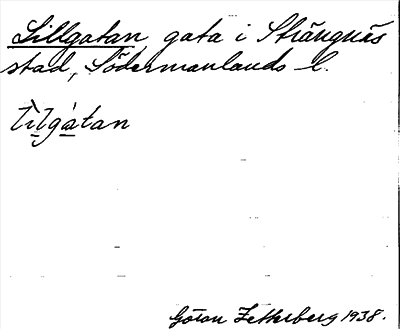 Lillgatan, gata i Strängnäs
stad, Södermanlands l.
lìlgàtan
Göran Zetterberg 1938.